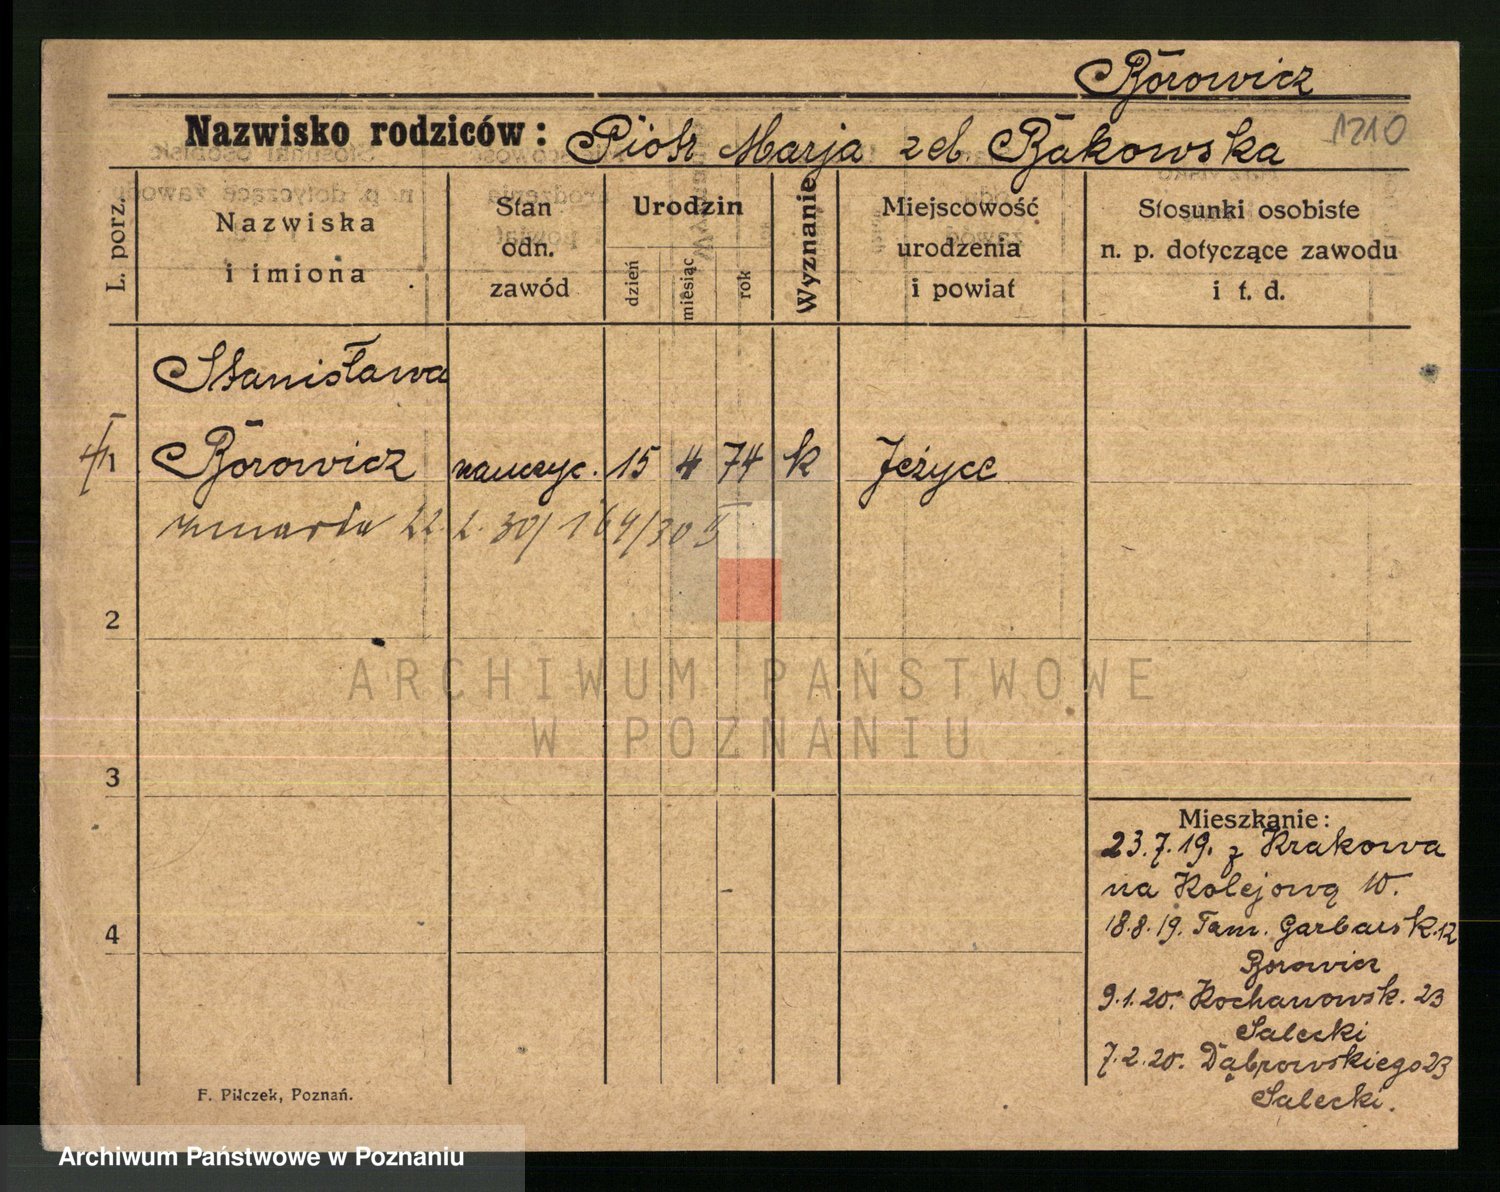 Borowicz
1210
Nazwisko rodziców: Piotr Marja zd. Bąkowska
L. porz.
Nazwiska
i imiona
Stan
odn.
zawód
Urodzin
dzień
miesiąc
rok
Wyznanie
Miejscowość
urodzenia
i powiat
Stosunki osobiste
n. p. dotyczące zawodu
i t. d.
Stanisława
1 Borowicz nauczyc. 15 4 74 k Jeżyce
zmarła 22. 2. 30/ 164/30
2
3
4
Mieszkanie:
23.7.19. z Krakowa
na Kolejową 10.
18.8.19. Tam. Garbarsk. 12
Borowicz
9.1.20. Kochanowsk. 23
Salecki
7.2.20. Dąbrowskiego 23
Salecki.
F. Pilczek, Poznań.
ARCHIWUM PAŃSTWOWE
W POZNANIU
Archiwum Państwowe w Poznaniu